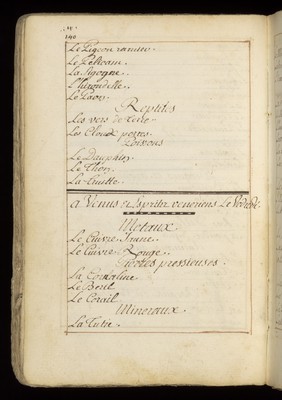 190
Le Pigeon ramier.
Le Pelicam.
La Sigogne.
L'hirondelle.
Le Paon.
Reptiles
Les vers de terre.
Les Cloux portes.
Poissons
Le Dauphin.
Le Thon.
La Truitte.
a Venus et Esprits veneriens Le
Metaux
Le Cuivre Jaune.
Le Cuivre Rouge.
Pierres pressieuses.
La Cornaline.
Le Beril.
Le Corail.
Mineraux.
La Tutie.